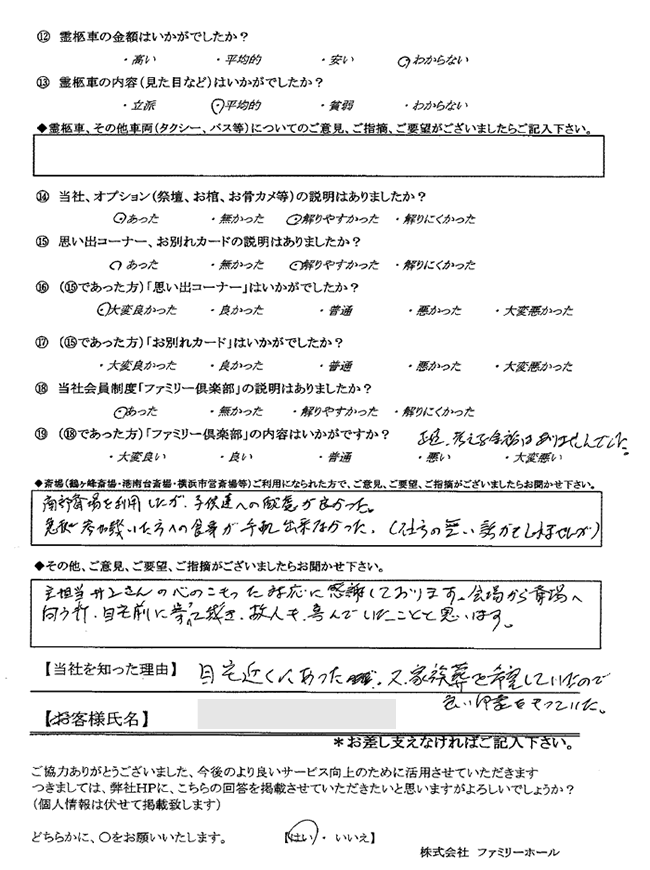 ⑫ 霊柩車の金額はいかがでしたか？
・高い ・平均的 ・安い ・わからない
⑬ 霊柩車の内容（見た目など）はいかがでしたか？
・立派 ・平均的 ・貧弱 ・わからない
◆霊柩車、その他車両（タクシー、バス等）についてのご意見、ご指摘、ご要望がございましたらご記入下さい。
⑭ 当社、オプション（祭壇、お棺、お骨カメ等）の説明はありましたか？
・あった ・無かった ・解りやすかった ・解りにくかった
⑮ 思い出コーナー、お別れカードの説明はありましたか？
・あった ・無かった ・解りやすかった ・解りにくかった
⑯ （⑮であった方）「思い出コーナー」はいかがでしたか？
・大変良かった ・良かった ・普通 ・悪かった ・大変悪かった
⑰ （⑮であった方）「お別れカード」はいかがでしたか？
・大変良かった ・良かった ・普通 ・悪かった ・大変悪かった
⑱ 当社会員制度「ファミリー倶楽部」の説明はありましたか？
・あった ・無かった ・解りやすかった ・解りにくかった
⑲ （⑱であった方）「ファミリー倶楽部」の内容はいかがですか？ 考える余裕はありませんでした。
・大変良い ・良い ・普通 ・悪い ・大変悪い
◆斎場（鶴ヶ峰斎場・港南台斎場・横浜市営斎場等）ご利用になられた方で、ご意見、ご要望、ご指摘がございましたらお聞かせ下さい。
南部斎場を利用したが、子供達への配慮が良かった。
急拠参加戴いた方への食事が手配出来なかった。（仕方の無い話かもしれませんが）
◆その他、ご意見、ご要望、ご指摘がございましたらお聞かせ下さい。
主担当井上さんの心のこもった対応に感謝しております。会場から斎場へ
向う折、自宅前に寄って戴き、故人も喜んでいたことと思います。
【当社を知った理由】 自宅近くにあった 又、家族葬を希望していたので
良い印象をもっていた。
【お客様氏名】
＊お差し支えなければご記入下さい。
ご協力ありがとうございました、今後のより良いサービス向上のために活用させていただきます
つきましては、弊社HPに、こちらの回答を掲載させていただきたいと思いますがよろしいでしょうか？
（個人情報は伏せて掲載致します）
どちらかに、〇をお願いいたします。 【はい・ いいえ】
株式会社 ファミリーホール